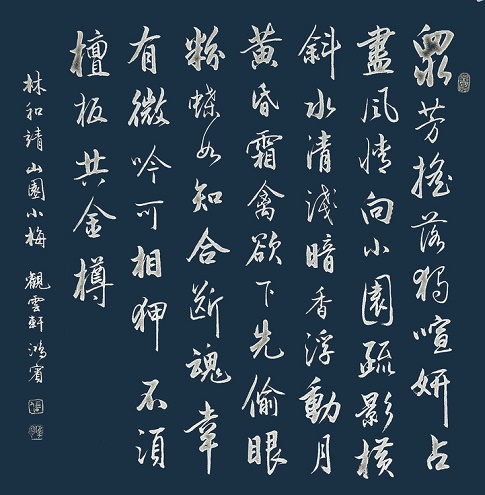 眾芳搖落獨喧妍占
盡風情向小園疏影橫
斜水清淺暗香浮動月
黃昏霜禽欲下先偷眼
粉蝶如知合斷魂幸
有微吟可相狎不須
檀板共金樽
林和靖山園小梅 觀雲軒鴻賓